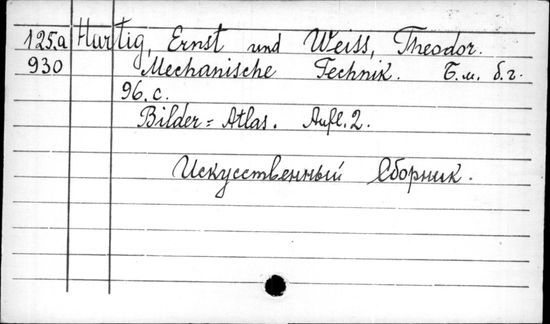 125.a Hurtig, Ernst und Weiss, Theodor.
930 Mechanische Technik. Б.м. б.г.
96.с.
Bilder=Atlas. Aufl. 2.
Искусственный Сборник.